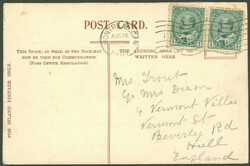 POST CARD.
THIS SPACE, AS WELL AS THE BACK, MAY
NOW BE USED FOR COMMUNICATION.
(POST OFFICE REGULATION)
THE ADDRESS ONLY TO BE
WRITTEN HERE.
FOR INLAND POSTAGE ONLY.
Mrs Trout
C/o Mrs Dixon
4 Vermont Villas
Vermont St
Beverley Rd
Hull
England